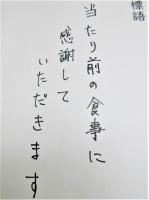 標語
当たり前の食事に
感謝して
いただきます